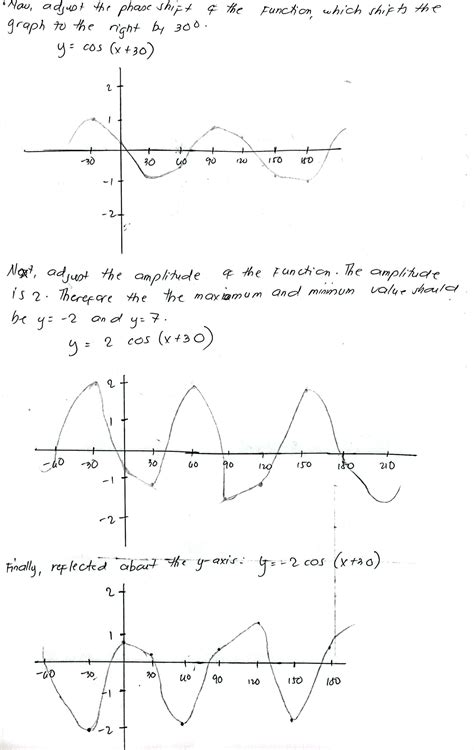 Now, adjust the phase shift of the Function, which shifts the
graph to the right by 300.
y = cos (x+30)
2
1
-30 30 60 90 120 150 180
-1
-2
Next, adjust the amplitude of the Function. The amplitude
is 2. Therefore the the maximum and minimum value should
be y= -2 and y= 7.
y = 2 cos (x+30)
2
1
-60 -30 30 60 90 120 150 180 210
-1
-2
Finally, reflected about the y-axis: y= -2 cos (x+30)
2
1
-60 -30 30 60 90 120 150 180
-1
-2